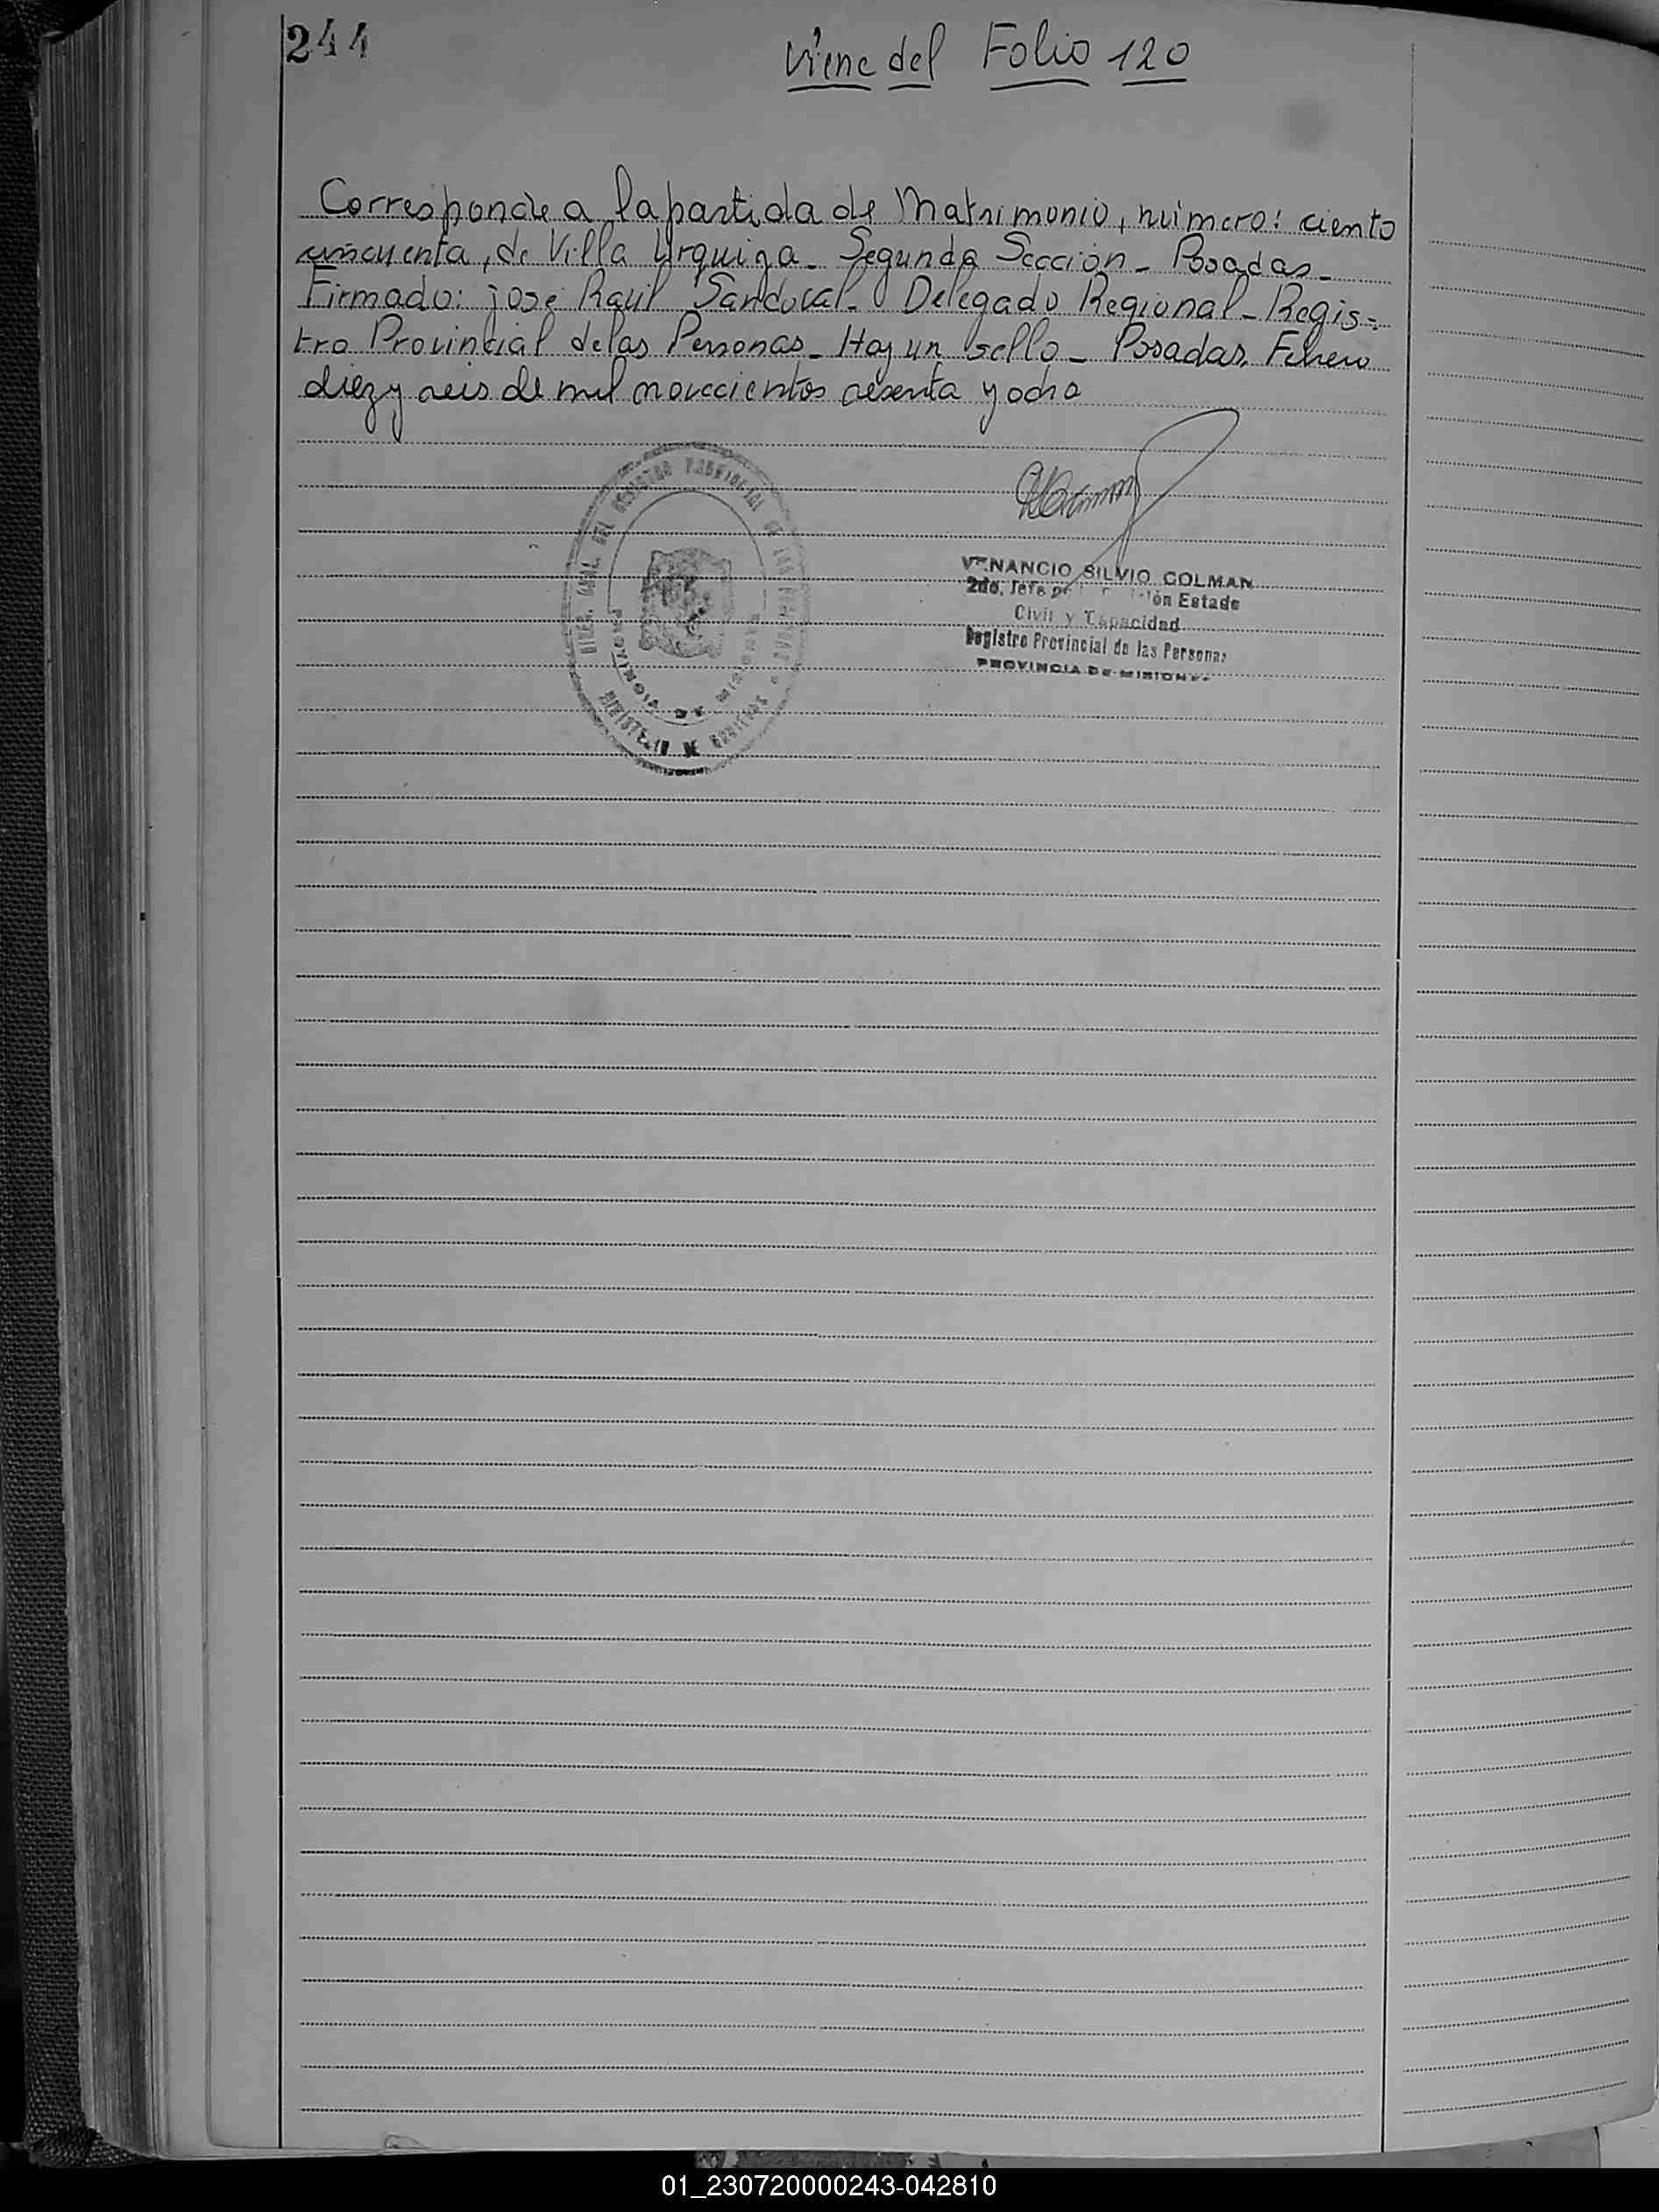 244
Viene del Folio 120
Corresponde a la partida de Matrimonio, número: ciento
cincuenta, de Villa Urquiza - Segunda Sección - Posadas -
Firmado: José Raúl Sandoval - Delegado Regional - Regis-
tro Provincial de las Personas - Hay un sello - Posadas, Febrero
diez y seis de mil novecientos sesenta y ocho
DEL REGISTRO PROVINCIAL DE LAS PERSONAS
PROVINCIA DE MISIONES
MINISTERIO DE
VENANCIO SILVIO COLMAN
2do. Jefe Estado
Civil y Capacidad
Registro Provincial de las Personas
PROVINCIA DE MISIONES
01_230720000243-042810